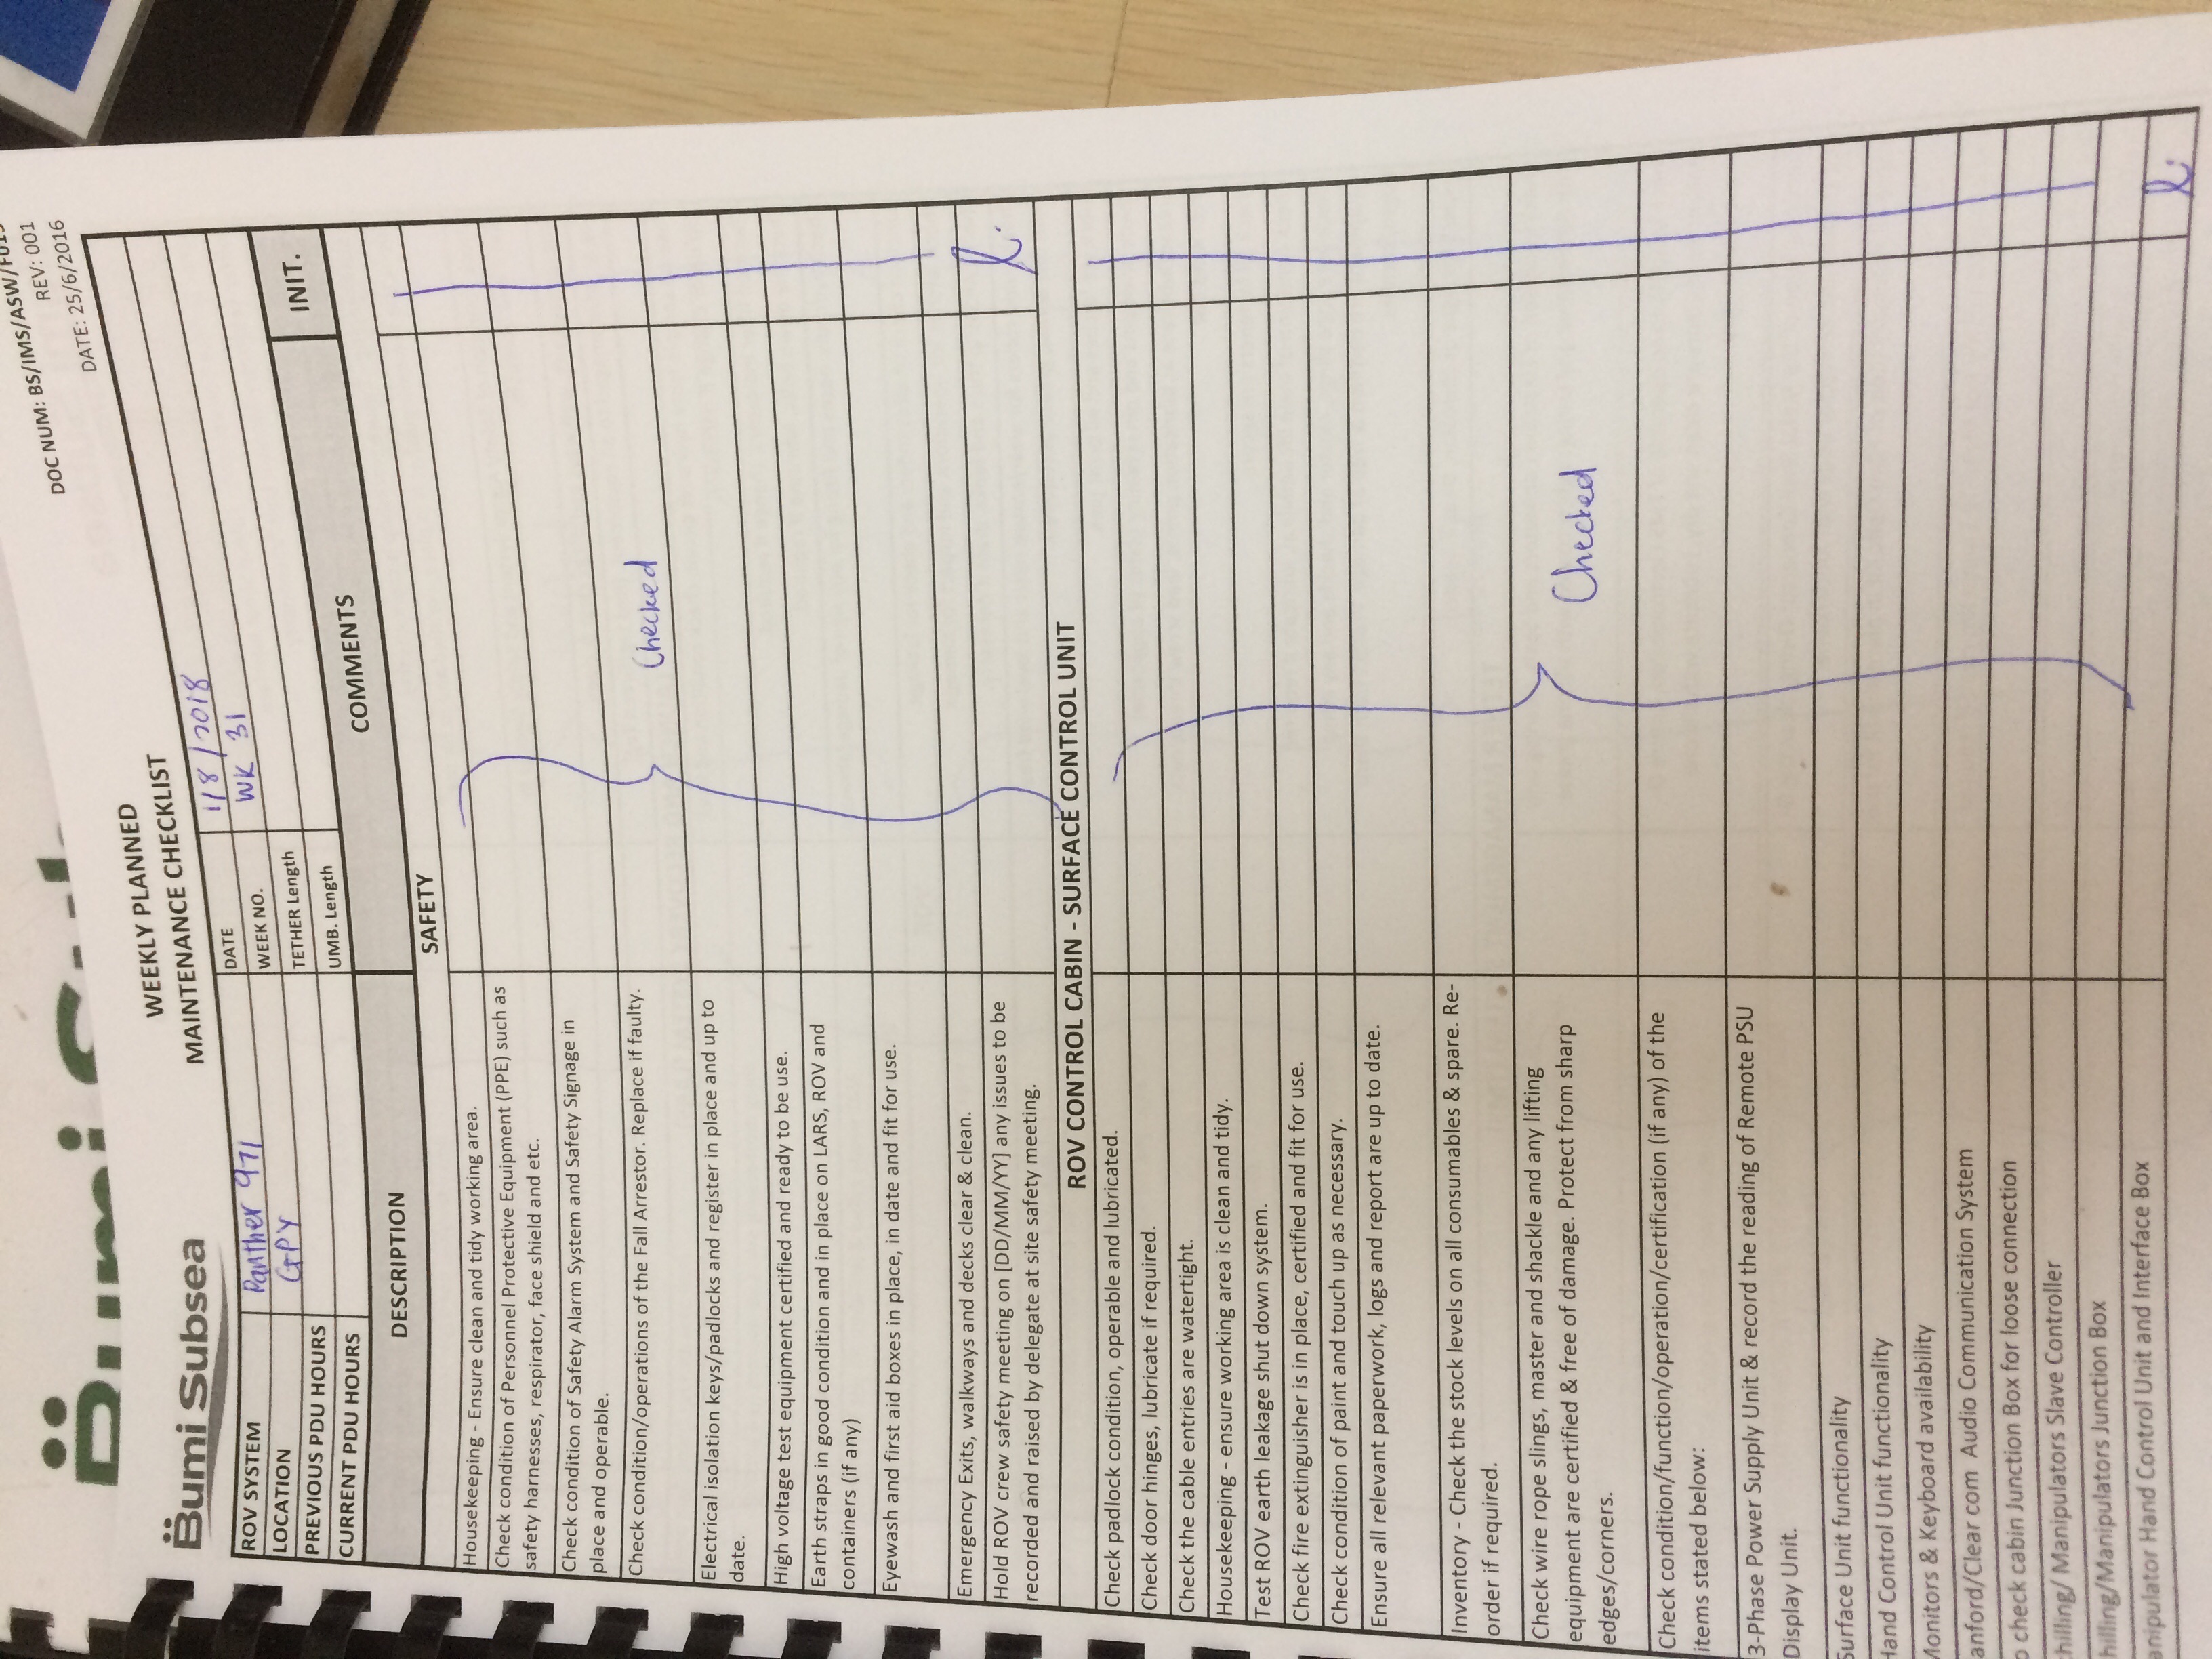 Bumi Sub
DOC NUM: BS/IMS/ASW/F015
REV: 001
DATE: 25/6/2016
WEEKLY PLANNED
MAINTENANCE CHECKLIST
Bumi Subsea
ROV SYSTEM Panther 971 DATE 1/8/2018
LOCATION GPY WEEK NO. WK 31
PREVIOUS PDU HOURS TETHER Length
CURRENT PDU HOURS UMB. Length
DESCRIPTION COMMENTS INIT.
SAFETY
Housekeeping - Ensure clean and tidy working area.
Check condition of Personnel Protective Equipment (PPE) such as
safety harnesses, respirator, face shield and etc.
Check condition of Safety Alarm System and Safety Signage in
place and operable.
Check condition/operations of the Fall Arrestor. Replace if faulty.
Checked
Electrical isolation keys/padlocks and register in place and up to
date.
High voltage test equipment certified and ready to be use.
Earth straps in good condition and in place on LARS, ROV and
containers (if any)
Eyewash and first aid boxes in place, in date and fit for use.
Emergency Exits, walkways and decks clear & clean.
Hold ROV crew safety meeting on [DD/MM/YY] any issues to be
recorded and raised by delegate at site safety meeting.
ROV CONTROL CABIN - SURFACE CONTROL UNIT
Check padlock condition, operable and lubricated.
Check door hinges, lubricate if required.
Check the cable entries are watertight.
Housekeeping - ensure working area is clean and tidy.
Test ROV earth leakage shut down system.
Check fire extinguisher is in place, certified and fit for use.
Check condition of paint and touch up as necessary.
Ensure all relevant paperwork, logs and report are up to date.
Inventory - Check the stock levels on all consumables & spare. Re-
order if required.
Check wire rope slings, master and shackle and any lifting
equipment are certified & free of damage. Protect from sharp
edges/corners.
Checked
Check condition/function/operation/certification (if any) of the
items stated below:
3-Phase Power Supply Unit & record the reading of Remote PSU
Display Unit.
Surface Unit functionality
Hand Control Unit functionality
Monitors & Keyboard availability
anford/Clear com Audio Communication System
o check cabin Junction Box for loose connection
hilling/ Manipulators Slave Controller
hilling/Manipulators Junction Box
anipulator Hand Control Unit and Interface Box